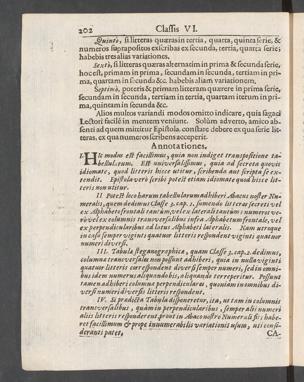 202 Classis VI.
Quintò, si litteras quæras in tertia, quarta, quinta serie, &
numeros suprapositos exscribas ex secunda, tertia, quarta serie;
habebis tres alias variationes.
Sextò, si litteras quæras alternatim in prima & secunda serie,
hoc est, primam in prima, secundam in secunda, tertiam in pri-
ma, quartam in secunda &c. habebis aliam variationem.
Septimò, poteris & primam litteram quærere in prima serie,
secundam in secunda, tertiam in tertia, quartam iterum in pri-
ma, quintam in secunda &c.
Alios multos variandi modos omitto indicare, quia sagad
Lectori facilè in mentem venient. Solùm adverto, amico ab-
senti ad quem mittitur Epistola, constare debere ex qua serie lit-
teras, ex qua numeros scribens acceperit.
Annotationes.
I. Hic modus est facillimus, quia non indiget transpositione ta-
bellularum. Est universalissimus, quia ad secreta quovis
idiomate, quod litteris hisce utitur, scribenda aut scripta se ex-
tendit. Epistola verò scribi potest etiam idiomate quod hisce lit-
teris non utitur.
II. Potest loco harum tabellularum adhiberi Abacus noster Nu-
meralis, quem dedimus Classe 5. cap. 1. sumendo litteras secreti vel
ex Alphabeto frontali tantùm, vel ex laterali tantùm; numeros ve-
rò vel ex columnis transversalibus infra Alphabetum frontale, vel
ex perpendicularibus ad latus Alphabeti lateralis. Nam utroque
in casu semper viginti quatuor litteris respondent viginti quatuor
numeri diversi.
III. Tabula steganographica, quam Classe 5. cap. 2. dedimus,
columna transversalis non possunt adhiberi, quia in nulla viginti
quatuor litteris correspondent diversi semper numeri, sed in omni-
bus idem numerus aliquando bis, aliquando ter repetitur. Possunt
tamen adhiberi columnæ perpendiculares, quoniam in omnibus di-
versi numeri diversis litteris respondent.
IV. Si prædicta Tabula disponeretur, ita, ut tam in columnis
transversalibus, quàm in perpendicularibus, semper alii numeri
aliis litteris responderent, prout in Abaco nostro Numerali fit; habe-
ret facillimum & prope innumerabilis variationis usum, uti consi-
deranti patet. CA-